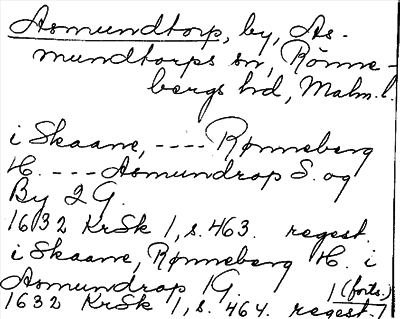 Asmundtorp, by, As-
mundtorps sn, Rönne-
bergs hd, Malm. l.
i Skaane, ---- Rønneberg
H. --- Asmundrop S. og
By 2 G.
1632 KrSk 1, s. 463. regest.
i Skaane, Rønneberg H. i
Asmundrap 1G. 1 (forts.)
1632 KrSk 1, s. 464. regest. 1